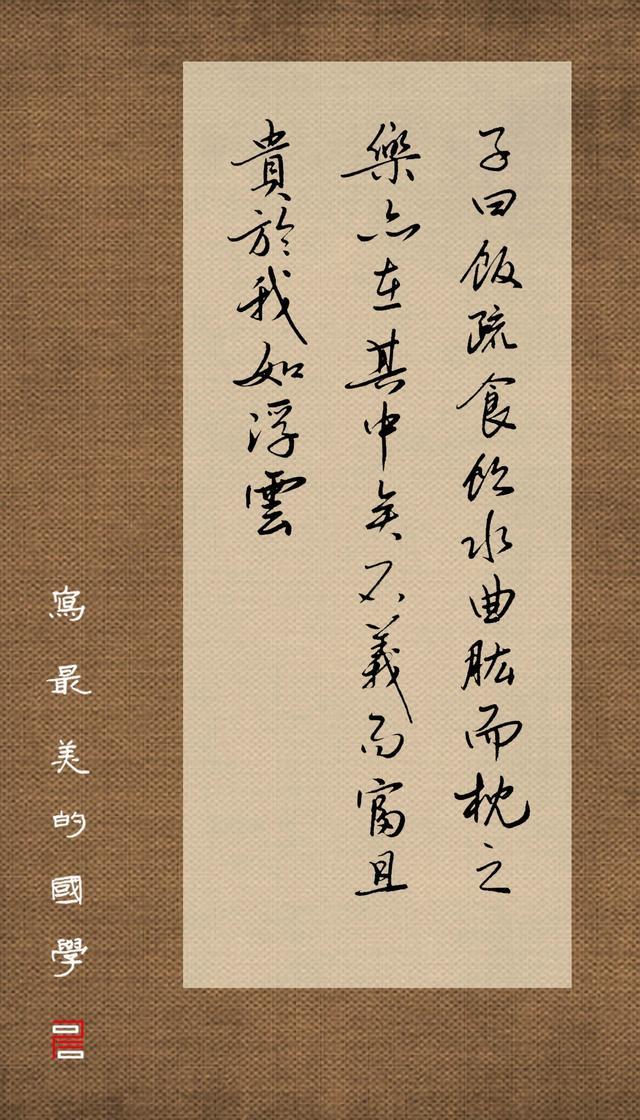 子曰飯疏食飲水曲肱而枕之
樂亦在其中矣不義而富且
貴於我如浮雲
寫最美的國學